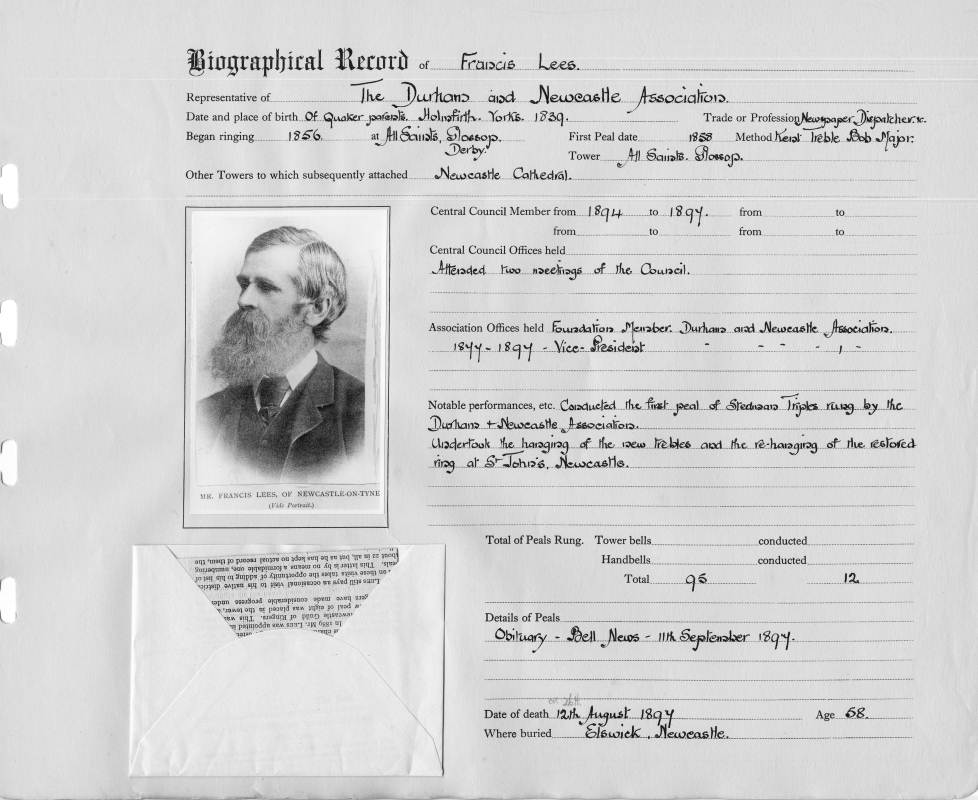 Biographical Record of Francis Lees.
Representative of The Durham and Newcastle Association.
Date and place of birth Of Quaker parents. Holmfirth. Yorks. 1839. Trade or Profession Newspaper Dispatcher. &c.
Began ringing 1856. at All Saints, Glossop. Derby. First Peal date 1858 Method Kent Treble Bob Major.
Tower All Saints. Glossop.
Other Towers to which subsequently attached Newcastle Cathedral.
Central Council Member from 1894 to 1897. from to
from to from to
Central Council Offices held
Attended two meetings of the Council.
Association Offices held Foundation Member. Durham and Newcastle Association.
1877 - 1897 - Vice-President " - " - " - " -
Notable performances, etc. Conducted the first peal of Stedman Triples rung by the
Durham + Newcastle Association.
Undertook the hanging of the new trebles and the re-hanging of the restored
ring at St John's, Newcastle.
MR. FRANCIS LEES, OF NEWCASTLE-ON-TYNE
(Vide Portrait.)
Total of Peals Rung. Tower bells conducted
Handbells conducted
Total 95 12
Details of Peals
Obituary - Bell News - 11th September 1897.
or 26th
Date of death 12th August 1897 Age 58.
Where buried Elswick, Newcastle.
In 1889 Mr. LEES was appointed
Newcastle Guild of Ringers. This was
peal of eight was placed in the tower,
have made considerable progress under
LEES still pays an occasional visit to his native district
on those visits takes the opportunity of adding to his list of
This latter is by no means a formidable one, numbering
about 22 in all, but as he has kept no actual record of them, the